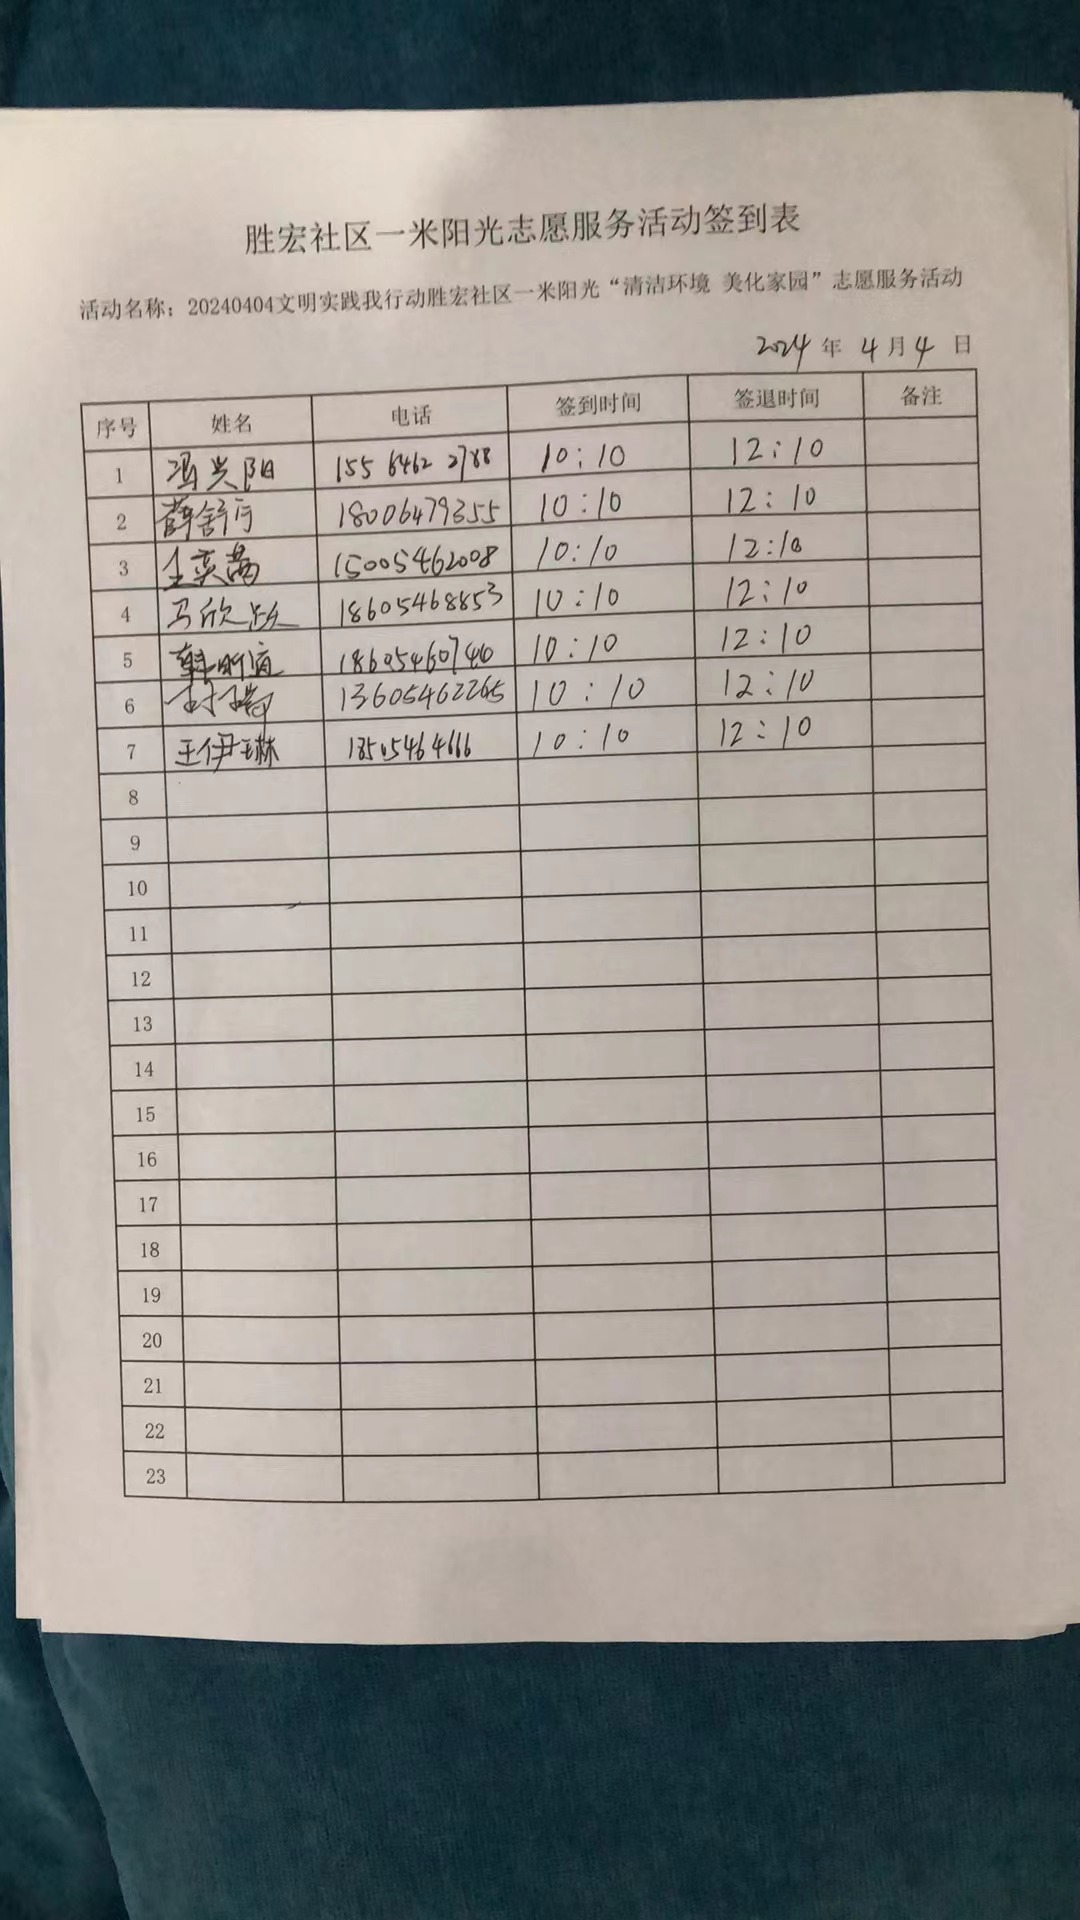 胜宏社区一米阳光志愿服务活动签到表
活动名称：20240404文明实践我行动胜宏社区一米阳光“清洁环境 美化家园”志愿服务活动
2024 年 4 月 4 日
序号 姓名 电话 签到时间 签退时间 备注
1 冯兴阳 155 6462 2788 10:10 12:10
2 薛舒 18006479355 10:10 12:10
3 15005462008 10:10 12:10
4 马欣 18605468853 10:10 12:10
5 韩昕 18605460740 10:10 12:10
6 13605462265 10:10 12:10
7 王伊琳 18505464666 10:10 12:10
8
9
10
11
12
13
14
15
16
17
18
19
20
21
22
23